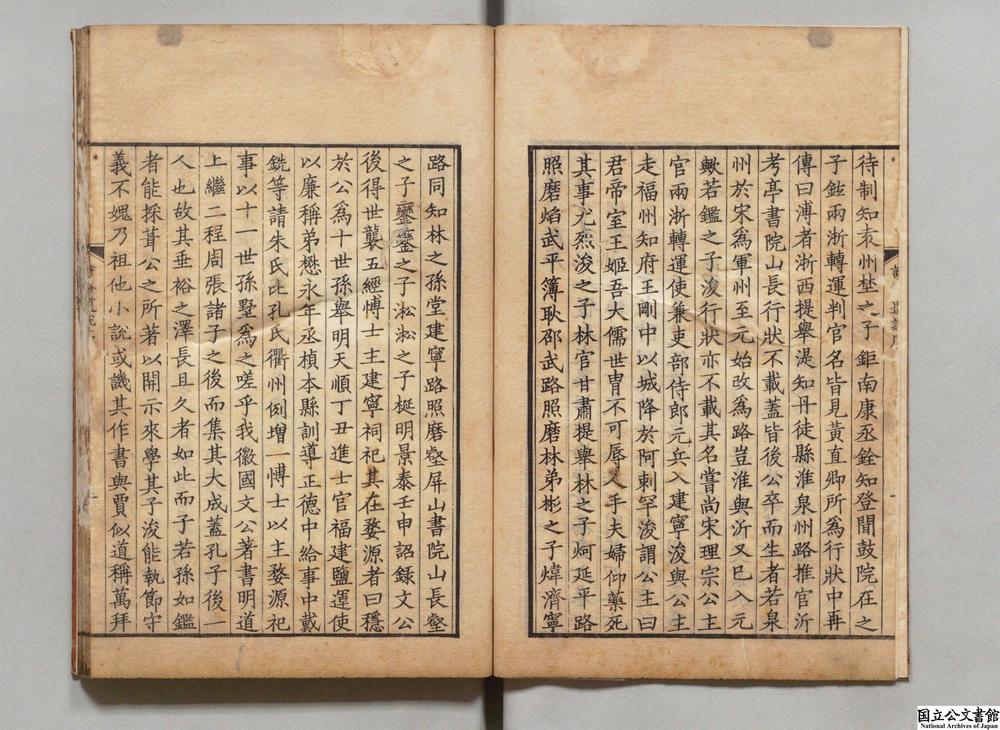 待制知袁州埜之子鉅南康丞銓知登聞鼓院在之
子鉉兩浙轉運判官名皆見黃直卿所爲行狀中再
傳曰溥者浙西提舉湜知丹徒縣淮泉州路推官沂
考亭書院山長行狀不載蓋皆後公卒而生者若泉
州於宋爲軍州至元始改爲路豈淮與沂又已入元
歟若鑑之子浚行狀亦不載其名嘗尚宋理宗公主
官兩浙轉運使兼吏部侍郎元兵入建寧浚與公主
走福州知府王剛中以城降於阿剌罕浚謂公主曰
君帝室王姬吾大儒世胄不可辱又手夫婦仰藥死
其事尤烈浚之子林官甘肅提舉林之子炣延平路
照磨焰武平簿耿邵武路照磨林弟彬之子煒濟寧
路同知林之孫堂建寧路照磨壑屏山書院山長壑
之子鑾鑾之子淞淞之子梴明景泰壬申詔錄文公
後得世襲五經博士主建寧祠祀其在婺源者曰穩
於公爲十世孫舉明天順丁丑進士官福建鹽運使
以廉稱弟懋永年丞楨本縣訓導正德中給事中戴
銑等請朱氏比孔氏衢州例增一博士以主婺源祀
事以十一世孫墅爲之嗟乎我徽國文公著書明道
上繼二程周張諸子之後而集其大成蓋孔子後一
人也故其垂裕之澤長且久者如此而子若孫如鑑
者能採葺公之所著以開示來學其子浚能執節守
義不媿乃祖他小說或譏其作書與賈似道稱萬拜
国立公文書館
National Archives of Japan